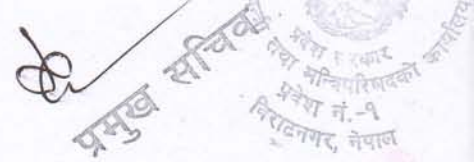 प्रमुख सचिव
प्रदेश सरकार
तथा मन्त्रिपरिषदको कार्यालय
प्रदेश नं.-१
विराटनगर, नेपाल